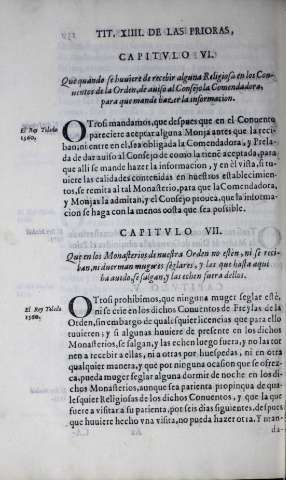 TIT. XIIII. DE LAS PRIORAS,
CAPITVLO VI.
Que quando se huuiere de recebir alguna Religiosa en los Con-
uentos de la Orden, de auiso al Consejo la Comendadora,
para que mande hazer la informacion.
El Rey Toledo
1560.
OTrosi mandamos, que despues que en el Conuento
pareciere aceptar alguna Monja antes que la reci-
ban, ni entre en el, sea obligada la Comendadora, y Prela-
da de dar auiso al Consejo de como la tienē aceptada, para
que alli se mande hazer la informacion, y en el vista, si tu-
uiere las calidades contenidas en nuestros establecimien-
tos, se remita al tal Monasterio, para que la Comendadora,
y Monjas la admitan, y el Consejo prouea, que la informa-
cion se haga con la menos costa que sea possible.
CAPITVLO VII.
Que en los Monasterios de nuestra Orden no esten, ni se reci-
ban, ni duerman mugeres seglares, y las que hasta aqui
ha auido, se salgan, y las echen fuera dellos.
El Rey Toledo
1560.
OTrosi prohibimos, que ninguna muger seglar esté,
ni se crie en los dichos Conuentos de Freylas de la
Orden, sin embargo de qualesquier licencias que para ello
tuuieren; y si algunas huuiere de presente en los dichos
Monasterios, se salgan, y las echen luego fuera, y no las tor
nen a recebir a ellas, ni a otras por huespedas, ni en otra
qualquier manera, y que por ninguna ocasion que se ofrez-
ca, pueda muger seglar alguna dormir de noche en los di-
chos Monasterios, aunque sea parienta propinqua de qua-
lesquier Religiosas de los dichos Conuentos, y que la que
fuere a visitar a su parienta, por seis dias siguientes, despues
que huuiere hecho vna visita, no pueda hazer otra. Y man-
da-